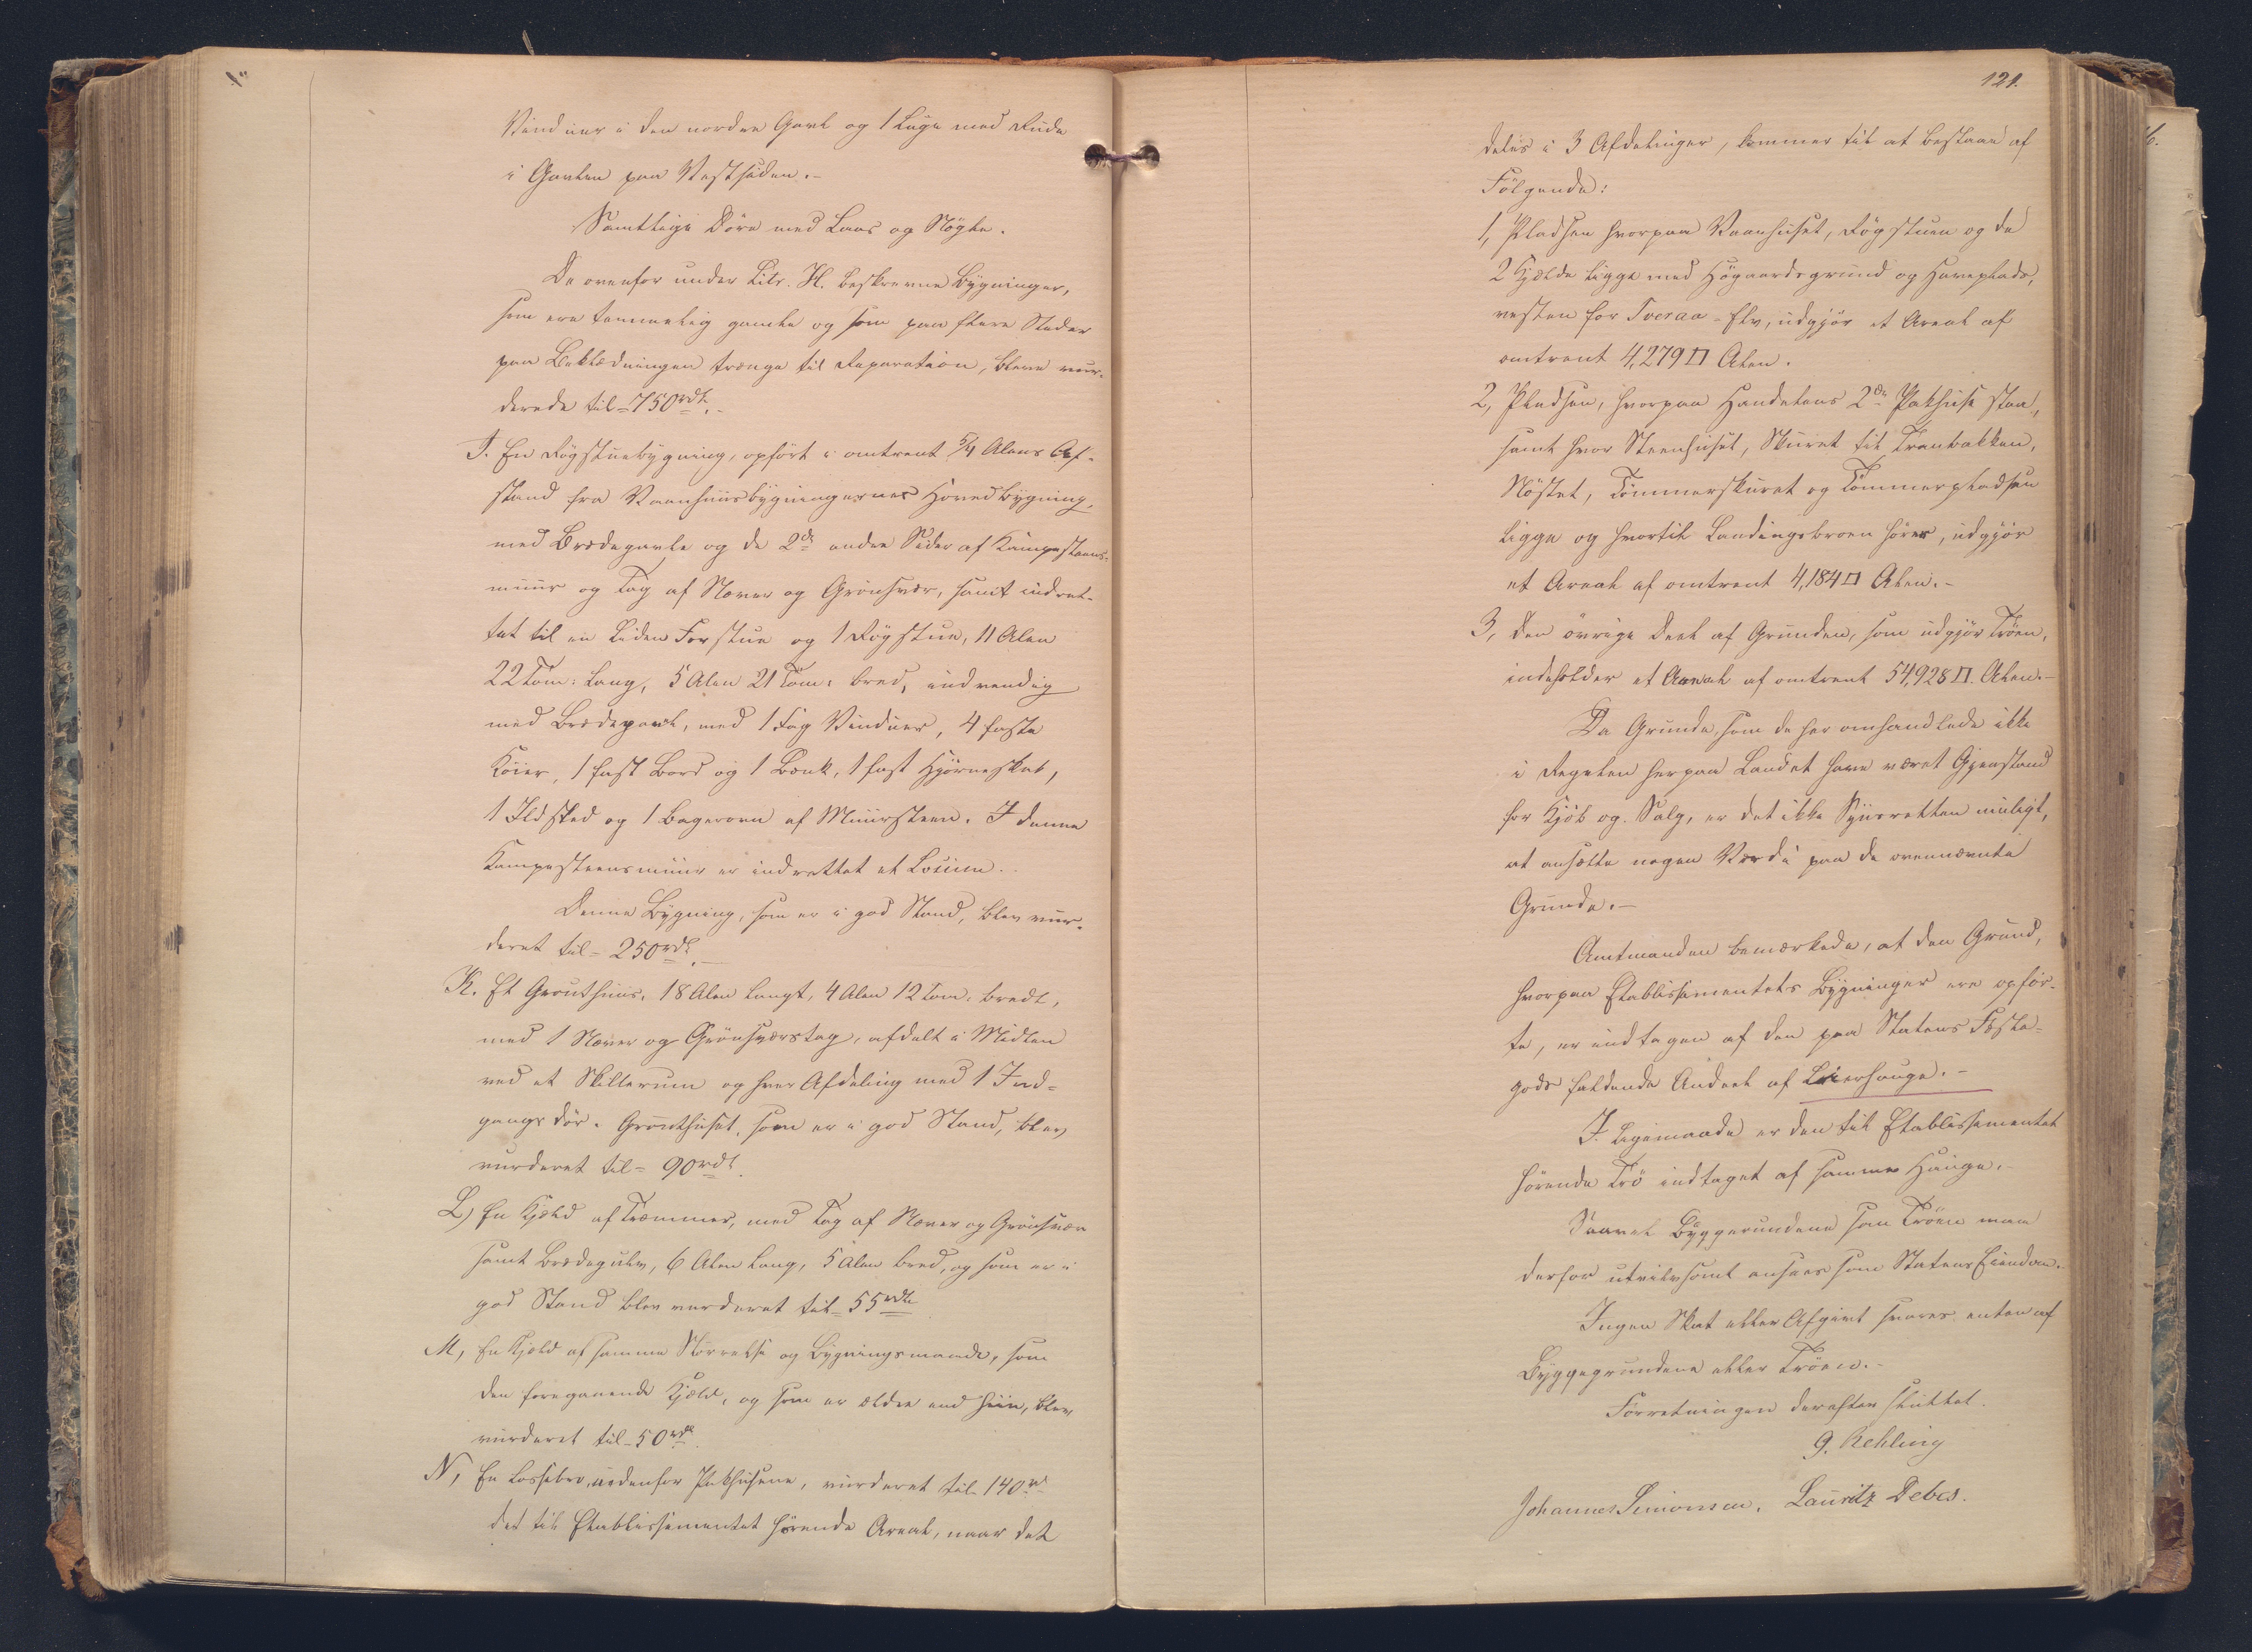 Vinduer i den nordre Gavl og 1 Luge med Rude
i Gavlen paa Vestsiden.-
Samtlige Döre med Laas og Nögle.
De ovenfor under Litr. H. beskrevne Bygninger,
som ere temmelig gamle og som paa flere Steder
paa Beklædningen trænge til Reparation, bleve vur-
derede til = 750 rdl.-
I. En Rögstuebygning, opfört i omtrent 5/4 Alens Af-
stand fra Vaanhuusbygningernes Hovedbygning,
med Brædegavle og de 2de andre Sider af Kampesteens-
muur og Tag af Næver og Grönsvær, samt indret-
tet til en liden Forstue og 1 Rögstue, 11 Alen
22 Tom: lang, 5 Alen 21 Tom: bred, indvendig
med Brædepanel, med 1 Fag Vinduer, 4 faste
Köier, 1 fast Bord og 1 Bænk, 1 fast Hjörneskab,
1 Ildsted og 1 Bagerovn af Muursteen. I denne
Kampesteensmuur er indrettet et Locum.-
Denne Bygning, som er i god Stand, blev vur-
deret til = 250 rdl.-
K. Et Grouthuus, 18 Alen langt, 4 Alen 12 Tom. bredt,
med 1 Næver og Grönsværstag, afdelt i Midten
ved et Skillerum og hver Afdeling med 1 Ind-
gangsdör. Grouthuset, som er i god Stand, blev
vurderet til = 90 rdl.
L) En Kjæld af Træmmer, med Tag af Næver og Grönsvær
samt Brædegulv, 6 Alen lang, 5 Alen bred, og som er i
god Stand blev vurderet til = 55 rdl.
M, En Kjæld af samme Störrelse og Bygningsmaade, som
den foregaaende Kjæld, og som er ældre end hiin, blev
vurderet til = 50 rdl.
N, En Lossebro, nedenfor Pakhusene, vurderet til 140 rd
det til Etablissementet hörende Areal, naar det
121.
deles i 3 Afdelinger, kommer til at bestaae af
Fölgende:
1, Pladsen hvorpaa Vaanhuset, Rögstuen og de
2 Kjælde ligge med Högaardsgrund og Haveplads,
vesten for Tveraa-Elv, udgjör et Areal af
omtrent 4,279 □ Alen.
2, Pladsen, hvorpaa Handelens 2de Pakhuse staa,
samt hvor Steenhuset, Skuret til Tranbakken,
Nöstet, Tömmerskuret og Tömmerpladsen
ligge og hvortil Landingsbroen hörer, udgjör
et Areal af omtrent 4,184 □ Alen.-
3, den övrige Deel af Grunden, som udgjör Tröen,
indeholder et Areal af omtrent 54,928 □. Alen.-
Da Grunde, som de her omhandlede ikke
i Regelen herpaa Landet have været Gjenstand
for Kjöb og Salg, er det ikke Synsretten muligt,
at ansætte nogen Værdi paa de ovennævnte
Grunde.-
Amtmanden bemærkede, at den Grund,
hvorpaa Etablissementets Bygninger ere opför-
te, er indtagen af den paa Statens Fæste-
gods faldende Andeel af Leiershauge.-
I Ligemaade er den til Etablissementet
hörende Trö indtaget af samme Hauge.-
Saavel Byggerundene som Tröen maa
derfor utvivlsomt ansees som Statens Eiendom.-
Ingen Skat eller Afgivt svares enten af
Byggegrundene eller Tröen.-
Forretningen derefter sluttet.
G. Rehling
Johannes Simonsen. Lauritz Debes.